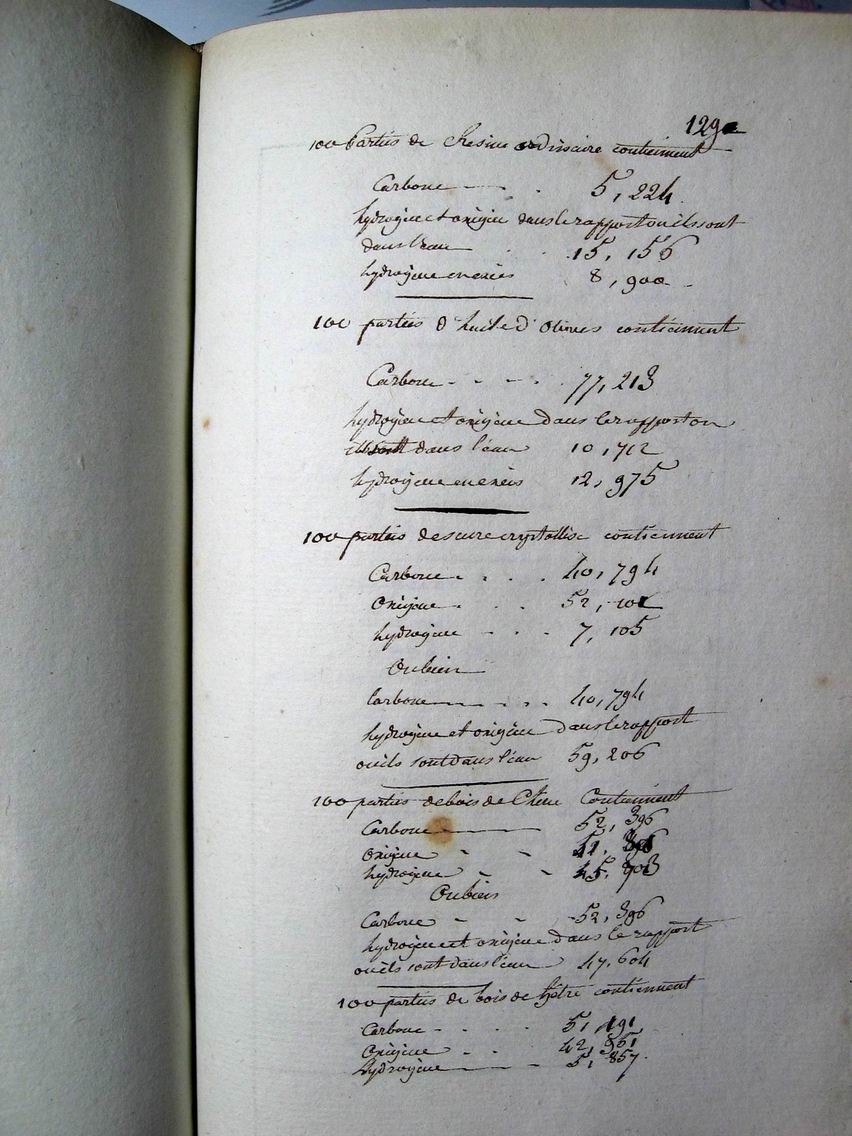 129
100 Parties de Resine ordinaire contiennent
Carbone 5, 224
hydrogène et oxigène dans le rapport ou ils sont
dans l'eau 15, 156
hydrogène en excès 8, 900
100 parties d'huile d'Olives contiennent
Carbone 77, 213
hydrogène et oxigène dans le rapport ou
ils sont dans l'eau 10, 712
hydrogène en excès 12, 975
100 parties de sucre crystallisé contiennent
Carbone 40, 794
Oxigène 52, 101
hydrogène 7, 105
Ou bien
Carbone 40, 794
hydrogène et oxigène dans le rapport
ou ils sont dans l'eau 59, 206
100 parties de bois de Chêne Contiennent
Carbone 52, 396
Oxigène
hydrogène
Ou bien
Carbone 52, 396
hydrogène et oxigène dans le rapport
ou ils sont dans l'eau 47, 604
100 parties de bois de hêtre contiennent
Carbone 51, 191
Oxigène 42, 951
hydrogène 5, 857